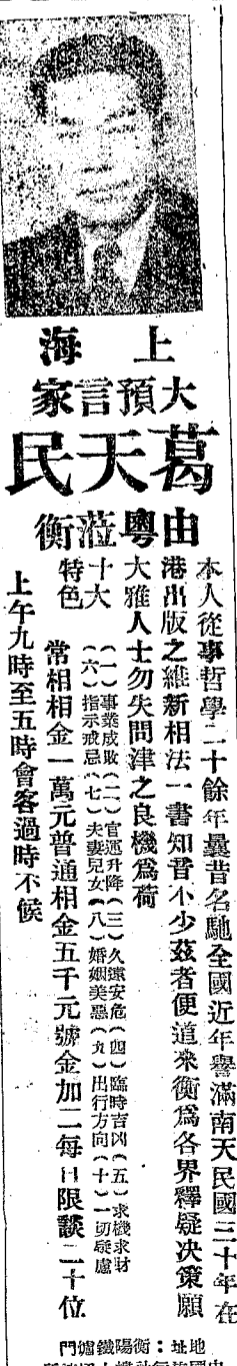 上海
大預言家
葛天民
由粵蒞衡
本人從事哲學二十餘年曩昔名馳全國近年譽滿南天民國三十年在
港出版之維新相法一書知音不少茲者便道來衡為各界釋疑决策願
大雅人士勿失問津之良機為荷
十大特色
(一)事業成敗(二)官運升降(三)久遠安危(四)臨時吉凶(五)求機求財
(六)指示戒忌(七)夫妻兒女(八)婚姻美惡(九)出行方向(十)一切疑慮
常相相金一萬元普通相金五千元號金加二每日限談二十位
上午九時至五時會客過時不候
地址：衡陽鐵爐門